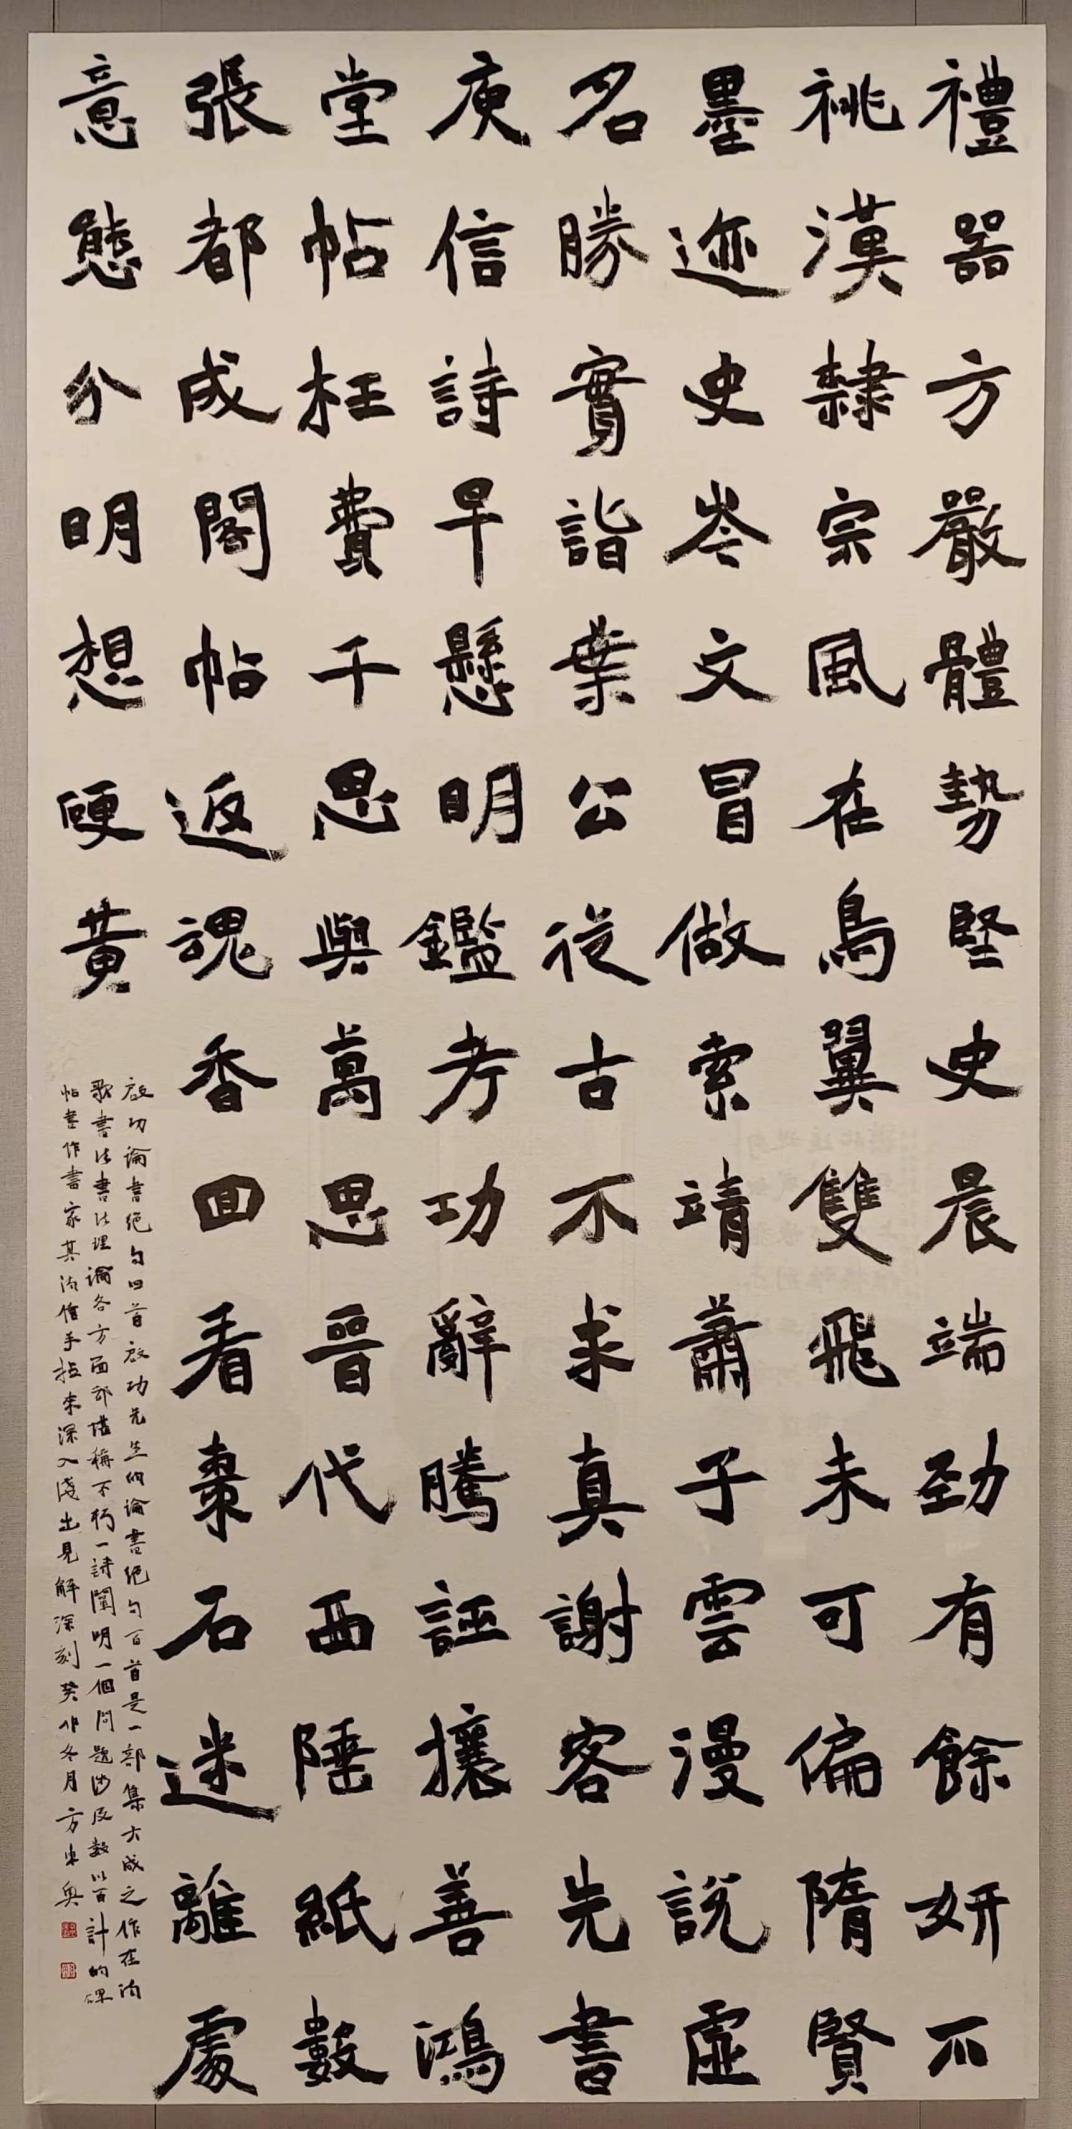 禮器方嚴體勢堅史晨端劲有餘妍不
祧漢隸宗風在鳥翼雙飛未可偏隋賢
墨迹史岑文冒做索靖蕭子雲漫説虛
名勝實詣葉公從古不求真謝客先書
庾信詩早懸明鑑考功辭騰誣攘善鴻
堂帖枉費千思與萬思晉代西陲紙數
張都成閣帖返魂香回看棗石迷離處
意態分明想硬黃
啟功論書絕句四首啟功先生的論書絕句百首是一部集大成之作在詩
歌書法書法理論各方面都堪稱不朽一詩闡明一個問題涉及數以百計的碑
帖書作書家其詩信手拈來深入淺出見解深刻癸卯冬月方東奥